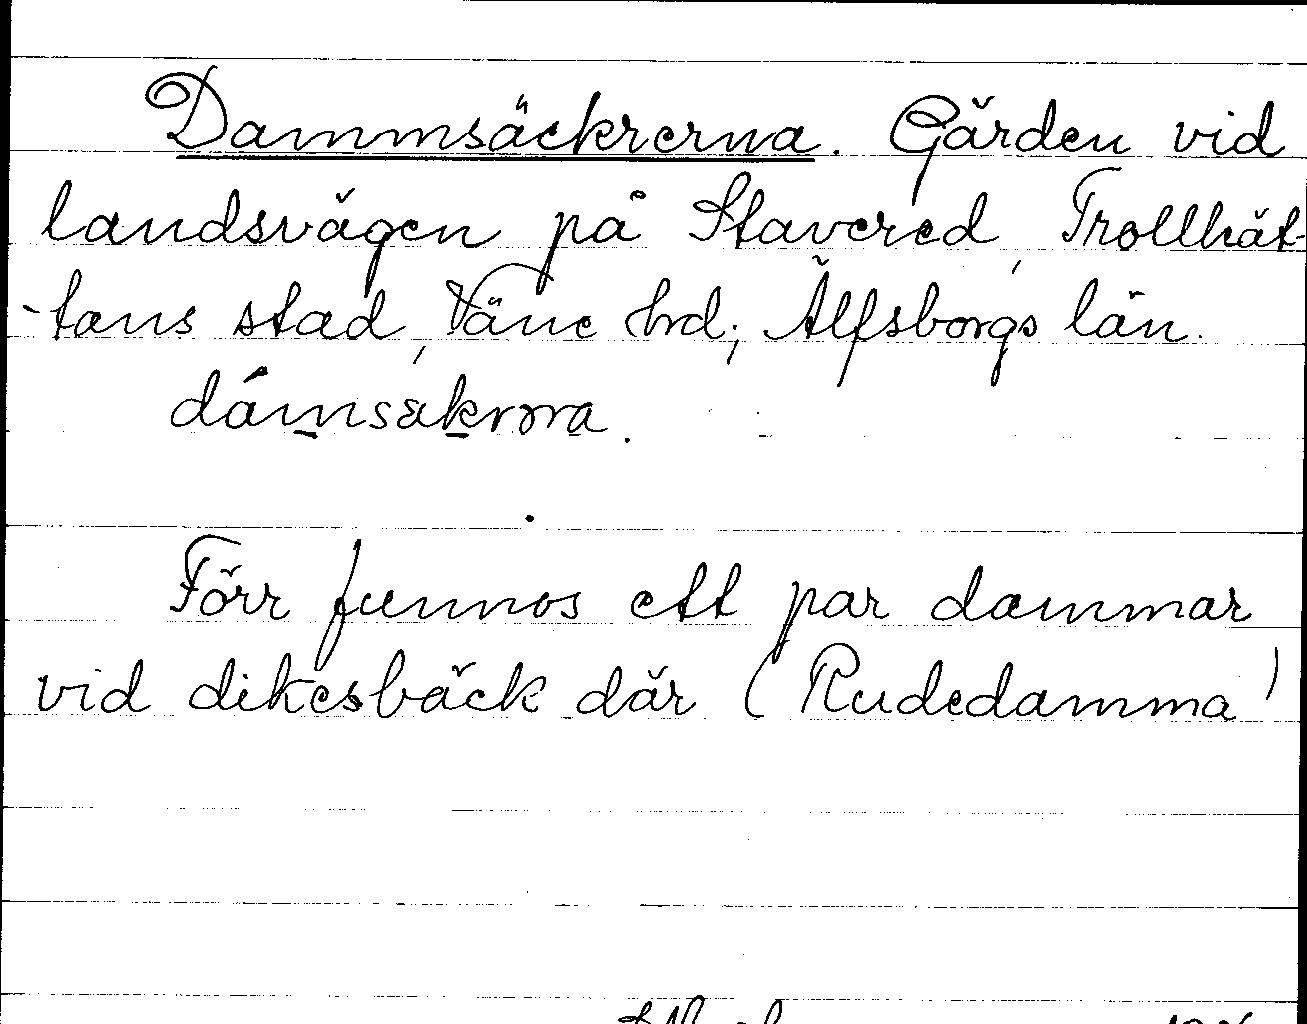 Dammsäckrerna. Gärden vid
landsvägen på Stavered, Trollhät-
-tans stad, Väne hrd; Älfsborgs län.
dámsäkrɔra.
Förr funnos ett par dammar
vid dikesbäck där (Rudedamma)